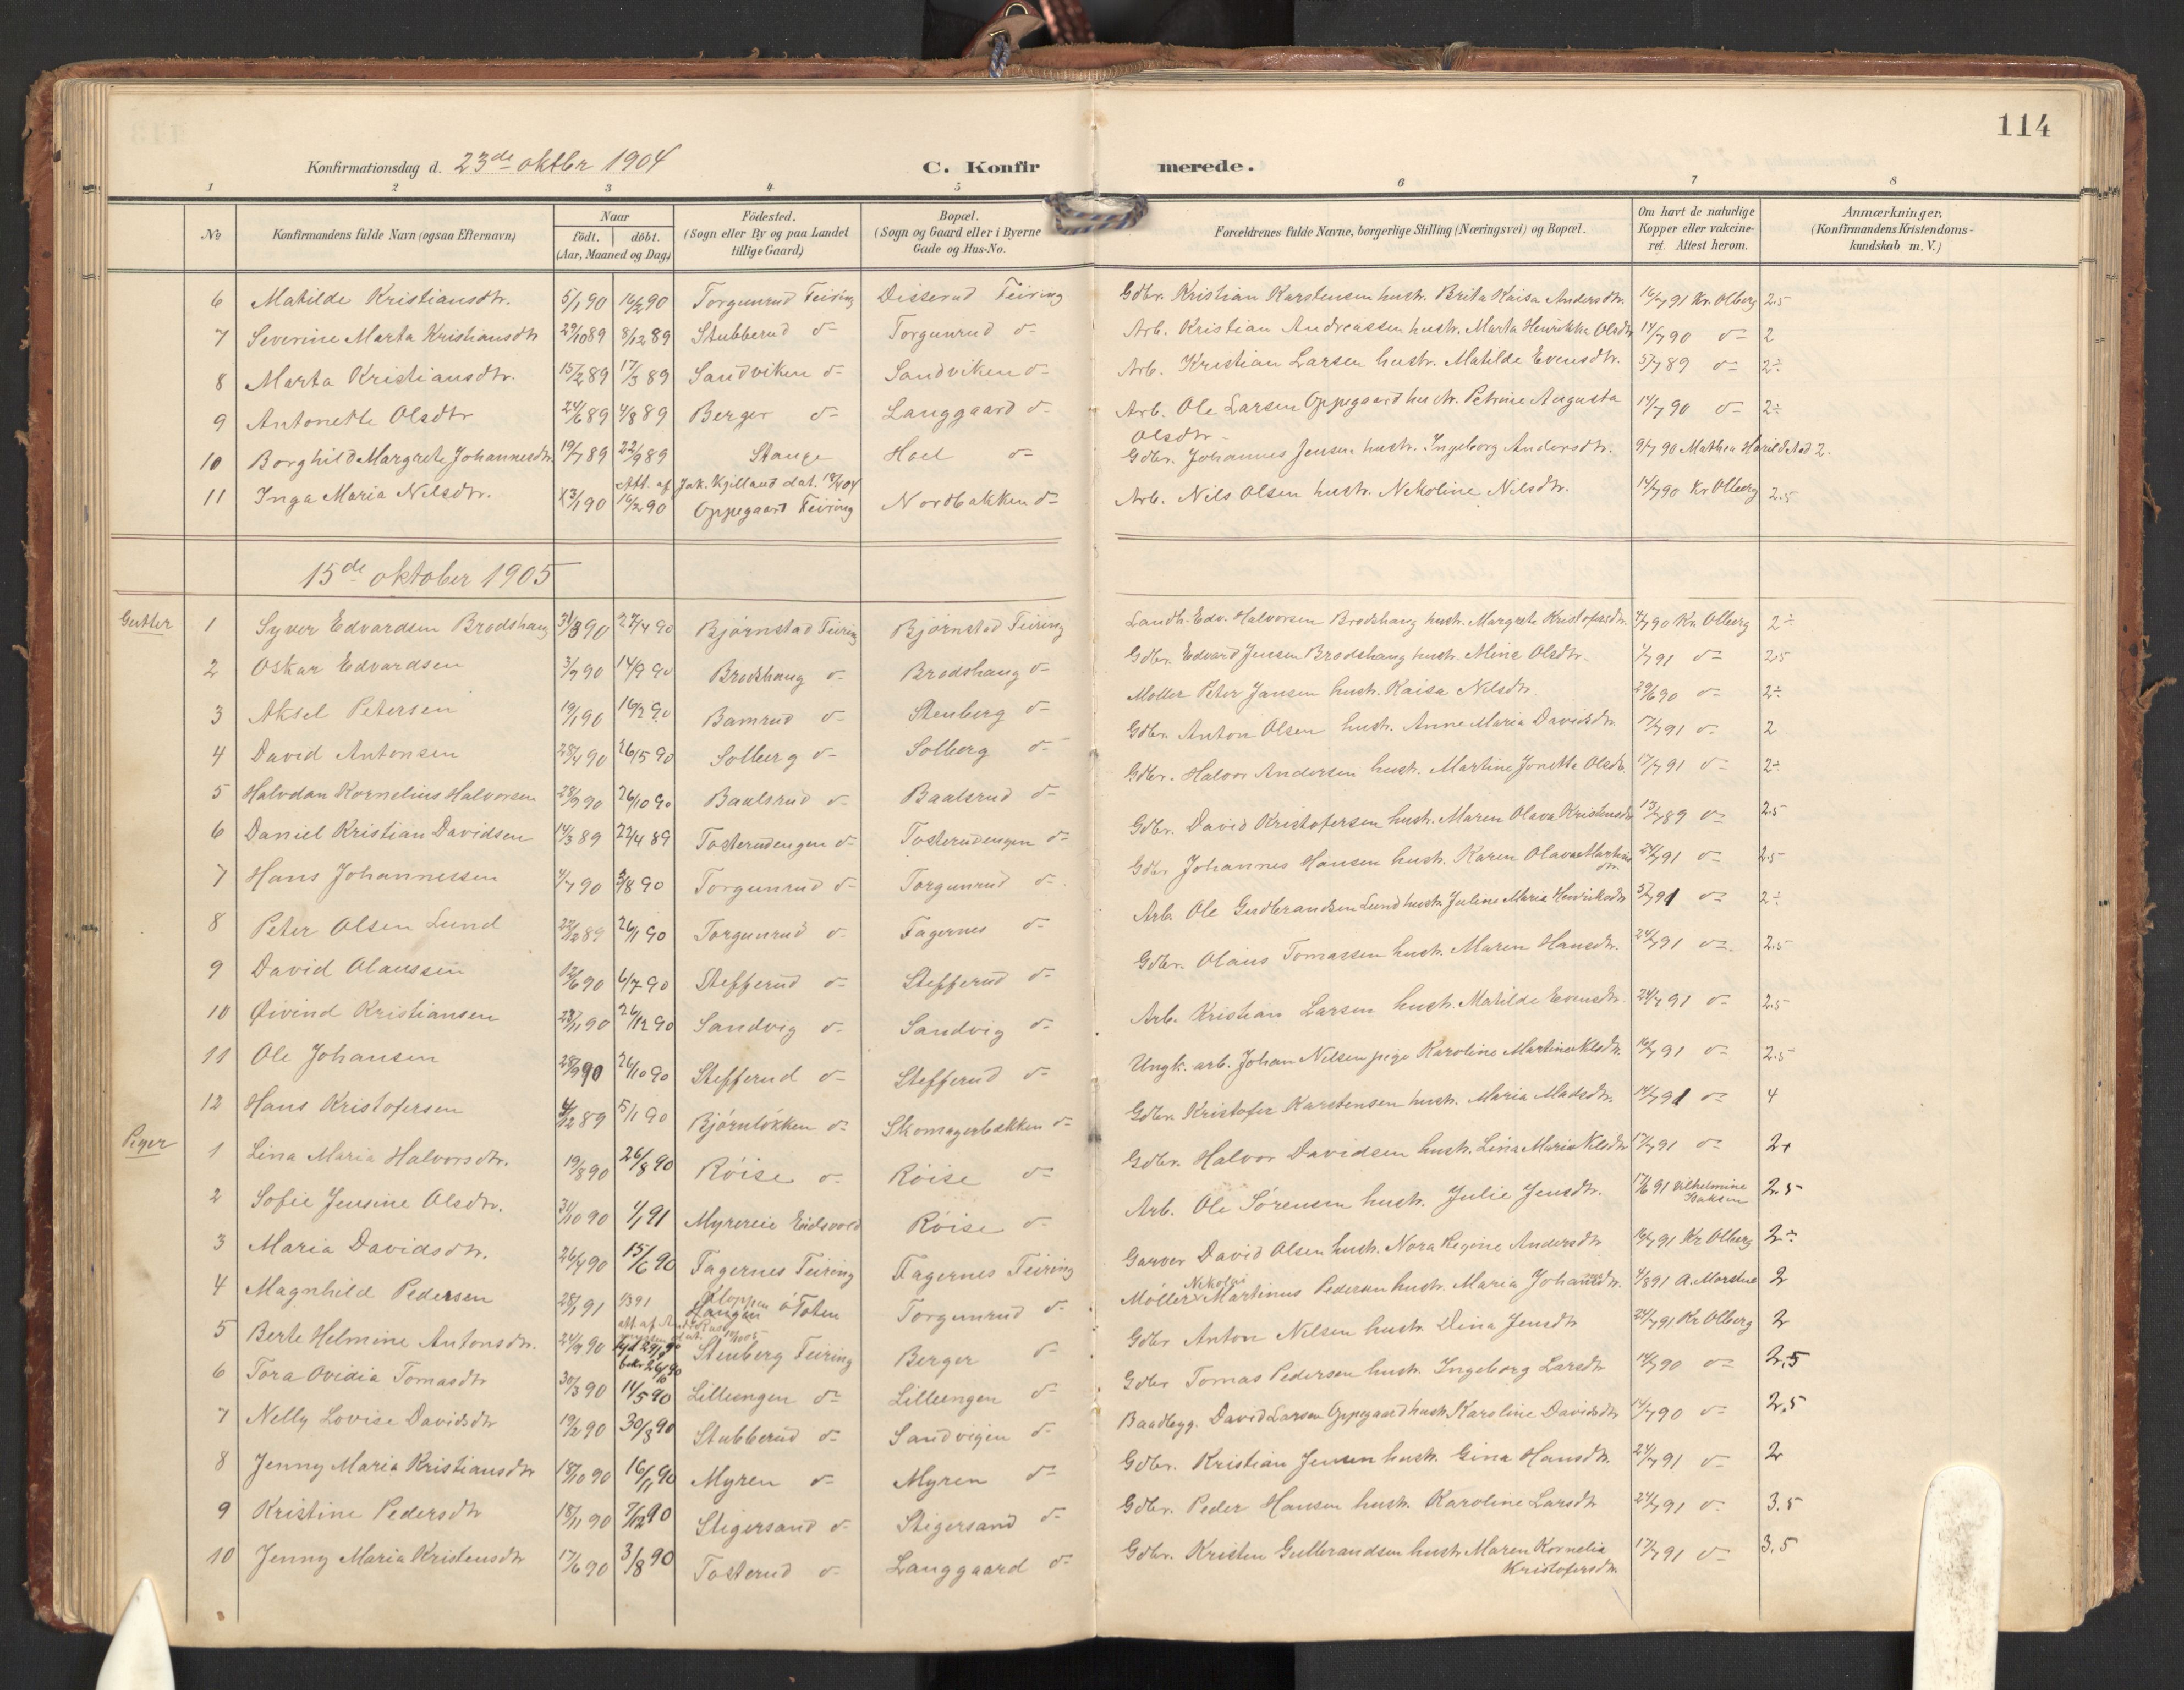 114
Konfirmationsdag d. 23de oktbr 1904 C. Konfirmerede.
1 2 3 4 5 6 7 8
No Konfirmandens fulde Navn (ogsaa Efternavn) Naar født. døbt. (Aar, Maaned og Dag) Födested. (Sogn eller By og paa Landet tillige Gaard) Bopæl. (Sogn og Gaard eller i Byerne Gade og Hus-No. Forældrenes fulde Navne, borgerlige Stilling (Næringsvei) og Bopæl. Om havt de naturlige Kopper eller vakcineret. Attest herom. Anmærkninger. (Konfirmandens Kristendomskundskab m. V.)
6 Matilde Kristiansdtr. 5/1 90 16/2 90 Torgunrud Feiring Disserud Feiring Gdbr. Kristian Karstensen hustr. Brita Kaisa Andersdtr. 16/7 91 Kr. Olberg 2.5
7 Severine Marta Kristiansdtr 29/10 89 8/12 89 Stubberud do Torgunrud do Arb. Kristian Andreassen hustr. Marta Henrikke Olsdtr 14/7 90 do 2
8 Marta Kristiansdtr. 15/2 89 17/3 89 Sandviken do Sandviken do Arb. Kristian Larsen hustr. Matilde Evensdtr. 5/7 89 do 2÷
9 Antonette Olsdtr 24/6 89 4/8 89 Berger do Langgaard do Arb. Ole Larsen Oppegaard hustr. Petrine Augusta Olsdtr 14/7 90 do 2÷
10 Borghild Margrete Johannesdtr. 19/7 89 22/9 89 Stange Hoel do Gdbr. Johannes Jensen hustr. Ingeborg Andersdtr. 9/7 90 Mathea Harildstad 2.
att. af Jak. Kjilland dat.
11 Inga Maria Nilsdtr. 13/1 90 16/2 90 Oppegaard Feiring Nordbakken do Arb. Nils Olsen hustr. Nekoline Nilsdtr. 14/7 90 Kr Olberg 2.5
15de oktober 1905
Gutter 1 Syver Edvardsen Brodshaug 31/3 90 27/4 90 Bjørnstad Feiring Bjørnstad Feiring Landh. Edv. Halvorsen Brodshaug hustr. Margrete Kristofersdtr. 4/7 90 Kr. Olberg 2÷
2 Oskar Edvardsen 3/7 90 14/9 90 Brodshaug do Brodshaug do Gdbr. Edvard Jensen Brodshaug hustr. Mina Olsdtr. 1/7 91 do 2.5
3 Aksel Petersen 19/1 90 16/2 90 Bamrud do Stenberg do Møller Peter Jansen hustr. Kaisa Nilsdtr. 29/6 90 do 2÷
4 David Antonsen 28/4 90 26/5 90 Solberg do Solberg do Gdbr. Anton Olsen hustr. Anne Maria Davidsdtr. 17/7 91 do 2
5 Halvdan Kornelius Halvorsen 28/9 90 26/10 90 Baalsrud do Baalsrud do Gdbr. Halvor Andersen hustr. Martine Jonette Olsdtr 17/7 91 do 2÷
6 Daniel Kristian Davidsen 14/3 89 22/4 89 Tosterudengen do Tosterudengen do Gdbr. David Kristofersen hustr. Maren Olava Kristensdtr 13/7 89 do 2.5
7 Hans Johannessen 4/7 90 3/8 90 Torgunrud do Torgunrud do Gdbr Johannes Hansen hustr. Karen Olava Martinsdtr. 24/7 91 do 2.5
8 Peter Olsen Lund 22/12 89 26/1 90 Torgunrud do Fagernes do Arb. Ole Gudbrandsen Lund hustr. Juline Maria Henriksdtr 5/7 91 do 2÷
9 David Olaussen 12/6 90 6/7 90 Stefferud do Stefferud do Gdbr. Olaus Tomassen hustr. Maren Hansdtr. 24/7 91 do 2.5
10 Øivind Kristiansen 23/11 90 26/12 90 Sandvig do Sandvig do Arb. Kristian Larsen hustr. Matilde Evensdtr. 24/7 91 do 2.5
11 Ole Johansen 28/9 90 26/10 90 Stefferud do Stefferud do Ungk. arb. Johan Nilsen pige Karoline Martinea Klsdtr. 16/7 91 do 2.5
12 Hans Kristofersen 4/12 89 5/1 90 Bjørnløkken do Skomagerbakken do Gdbr. Kristofer Karstensen hustr. Maria Madsdtr. 14/7 91 do 4
Piger 1 Lina Maria Halvorsdtr. 19/8 90 26/8 90 Røise do Røise do Gdbr. Halvor Davidsen hustr. Lina Maria Klsdtr 17/7 91 do 2+
2 Sofie Jensine Olsdtr. 31/10 90 4/1 91 Myrereie Eidsvold Røise do Arb. Ole Sørensen hustr. Julie Jensdtr. 17/6 91 Vilhelmine Isaksen 2.5
3 Maria Davidsdtr. 26/4 90 15/6 90 Fagernes Feiring Fagernes Feiring Garver David Olsen hustr. Nora Regine Andersdtr 16/7 91 Kr Olberg 2÷
4 Magnhild Pedersen 28/1 91 1/3 91 Haugen Ø Toten Torgunrud do Møller Nekolai Martinus Pedersen hustr. Maria Johansdtr. 4/8 91 A. Morstue 2
5 Berte Helmine Antonsdtr. 24/9 90 Stenberg Feiring Berger do Gdbr Anton Nilsen hustr. Dina Jensdtr 24/7 91 Kr Olberg 2
6 Tora Ovidia Tomasdtr 30/3 90 14/5 90 Lillengen do Lillengen do Gdbr Tomas Pedersen hustr. Ingeborg Larsdtr 14/7 90 do 2.5
7 Nelly Lovise Davidsdtr 19/2 90 30/3 90 Stubberud do Sandvigen do Baadbygg. David Larsen Oppegaard hustr. Karoline Davidsdtr 14/7 90 do 2.5
8 Jenny Maria Kristiansdtr 18/10 90 16/11 90 Myren do Myren do Gdbr. Kristian Jensen hustr. Gina Hansdtr. 24/7 91 do 2
9 Kristine Pedersdtr 18/11 90 7/12 90 Stigersand do Stigersand do Gdbr. Peder Hansen hustr. Karoline Larsdtr 24/7 91 do 3.5
10 Jenny Maria Kristensdtr 17/6 90 3/8 90 Tosterud do Langgaard do Gdbr. Kristen Gulbrandsen hustr Maren Kornelia Kristofersdtr. 17/7 91 do 3.5